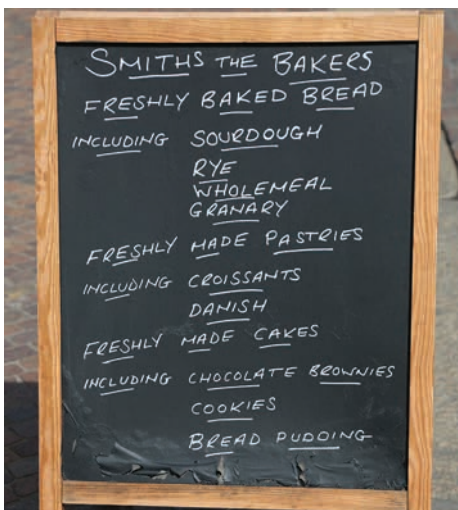 SMITHS THE BAKERS
FRESHLY BAKED BREAD
INCLUDING SOURDOUGH
RYE
WHOLEMEAL
GRANARY
FRESHLY MADE PASTRIES
INCLUDING CROISSANTS
DANISH
FRESHLY MADE CAKES
INCLUDING CHOCOLATE BROWNIES
COOKIES
BREAD PUDDING